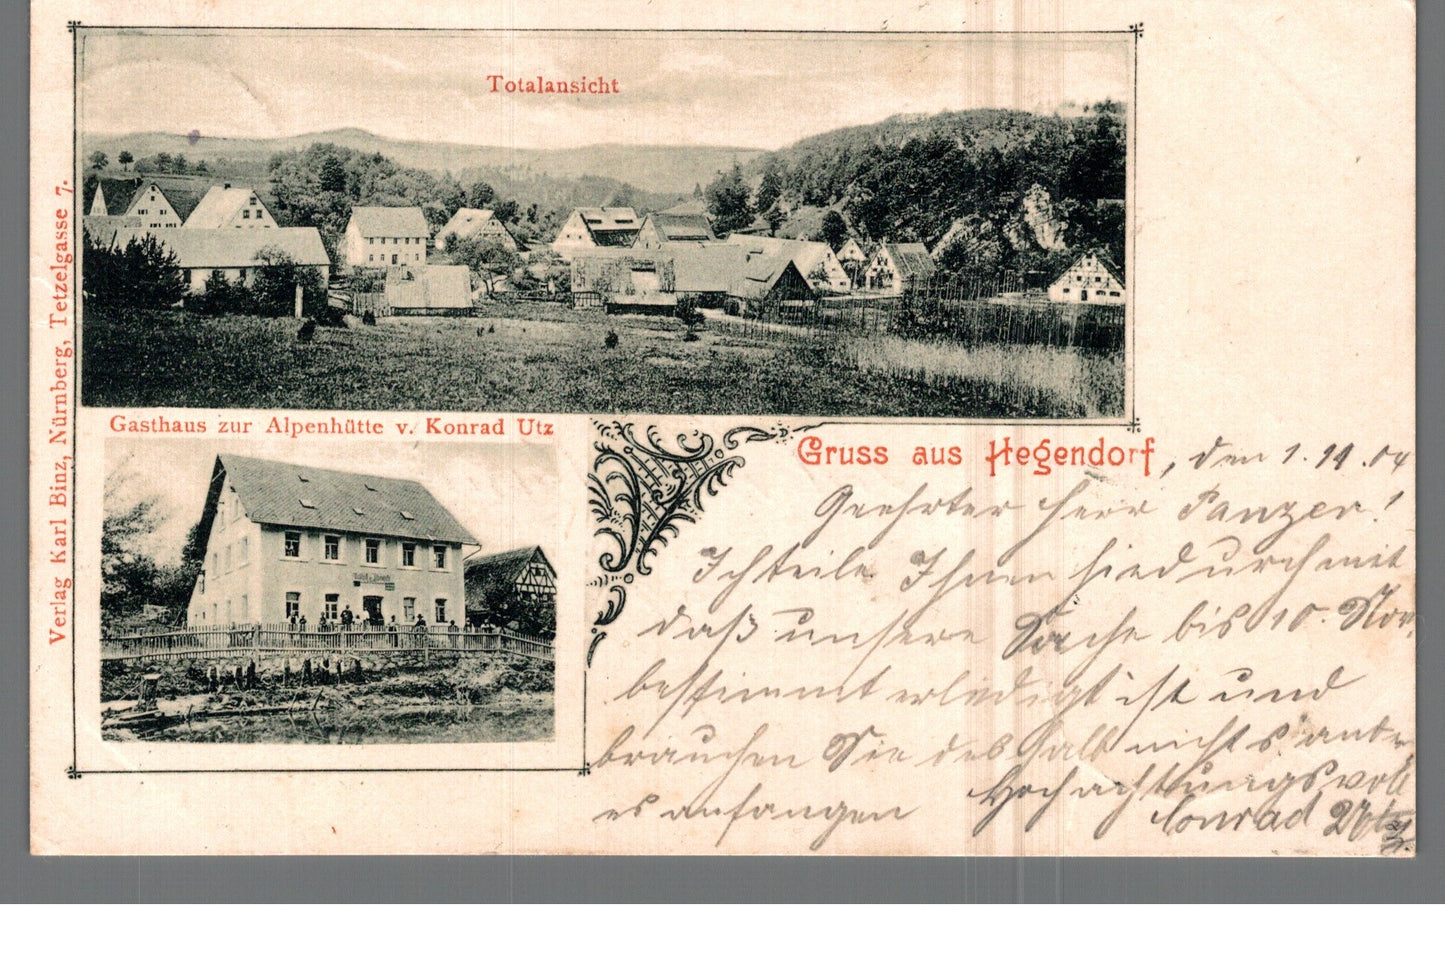 Totalansicht
Verlag Karl Binz, Nürnberg, Tetzelgasse 7.
Gasthaus zur Alpenhütte v. Konrad Utz
Gruss aus Hegendorf, den 1. 11. 04
Geehrter Herr Panzer!
Ich teile Ihnen hierdurch mit
daß unsere Sache bis 10. Nov.
bestimmt erledigt ist und
brauchen Sie deshalb nichts ander
es anfangen Hochachtungsvoll
Conrad Utz